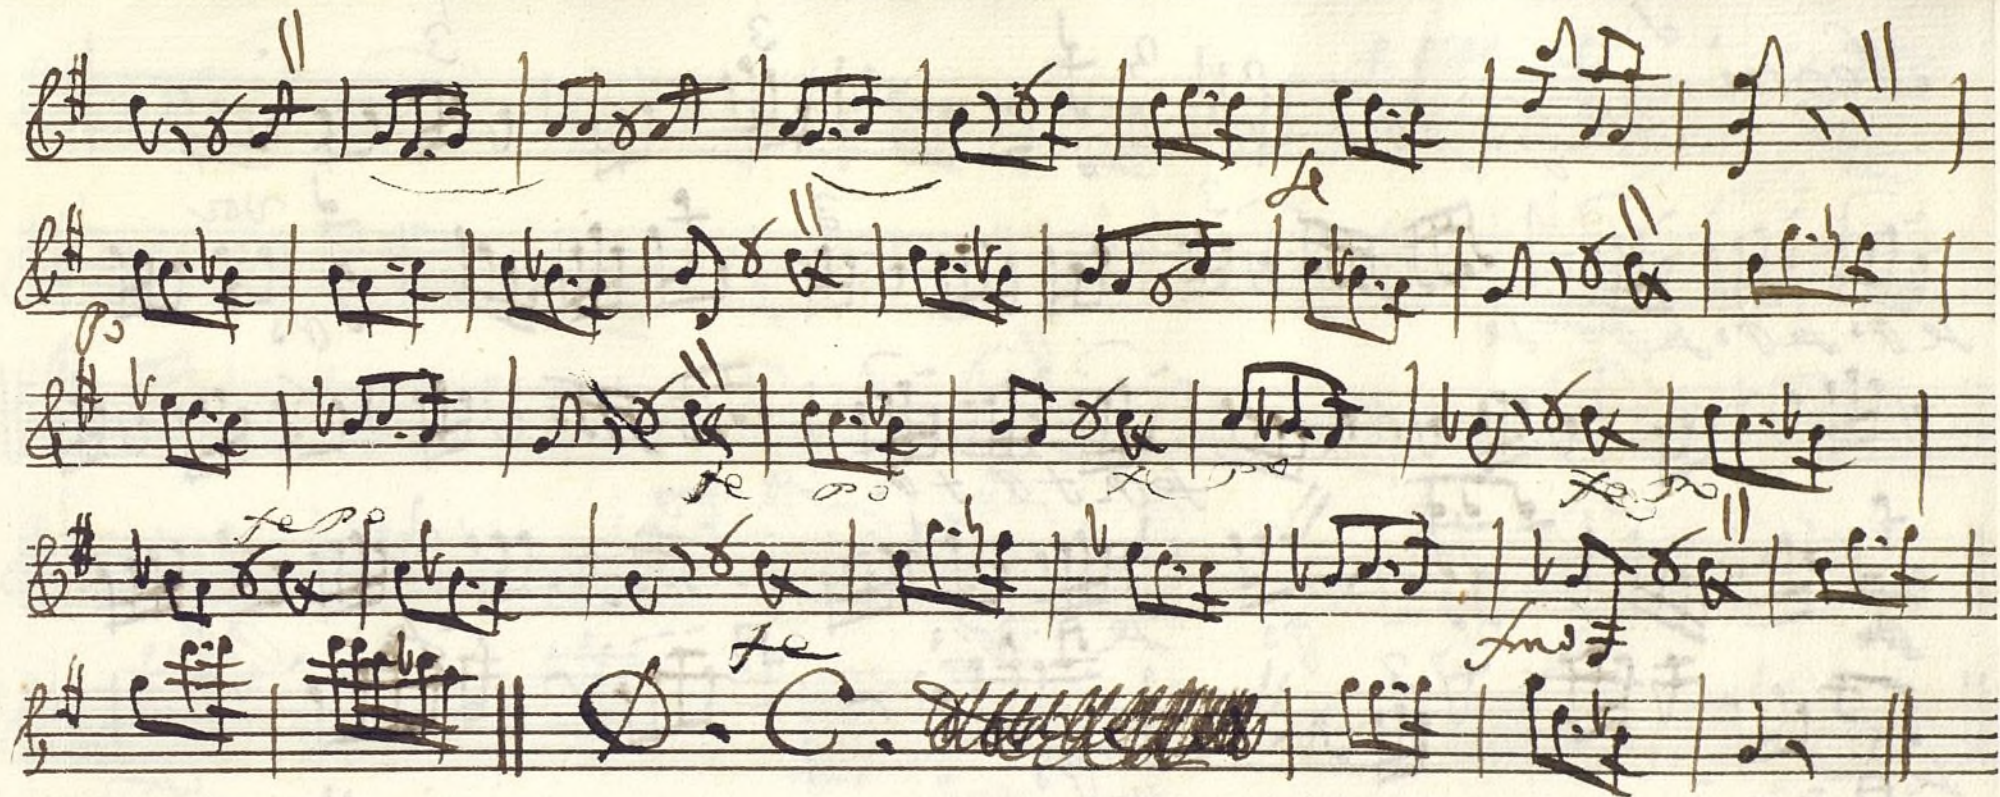 fe
po
fe po fe po fe po
fe po
fe fmo
D. C.